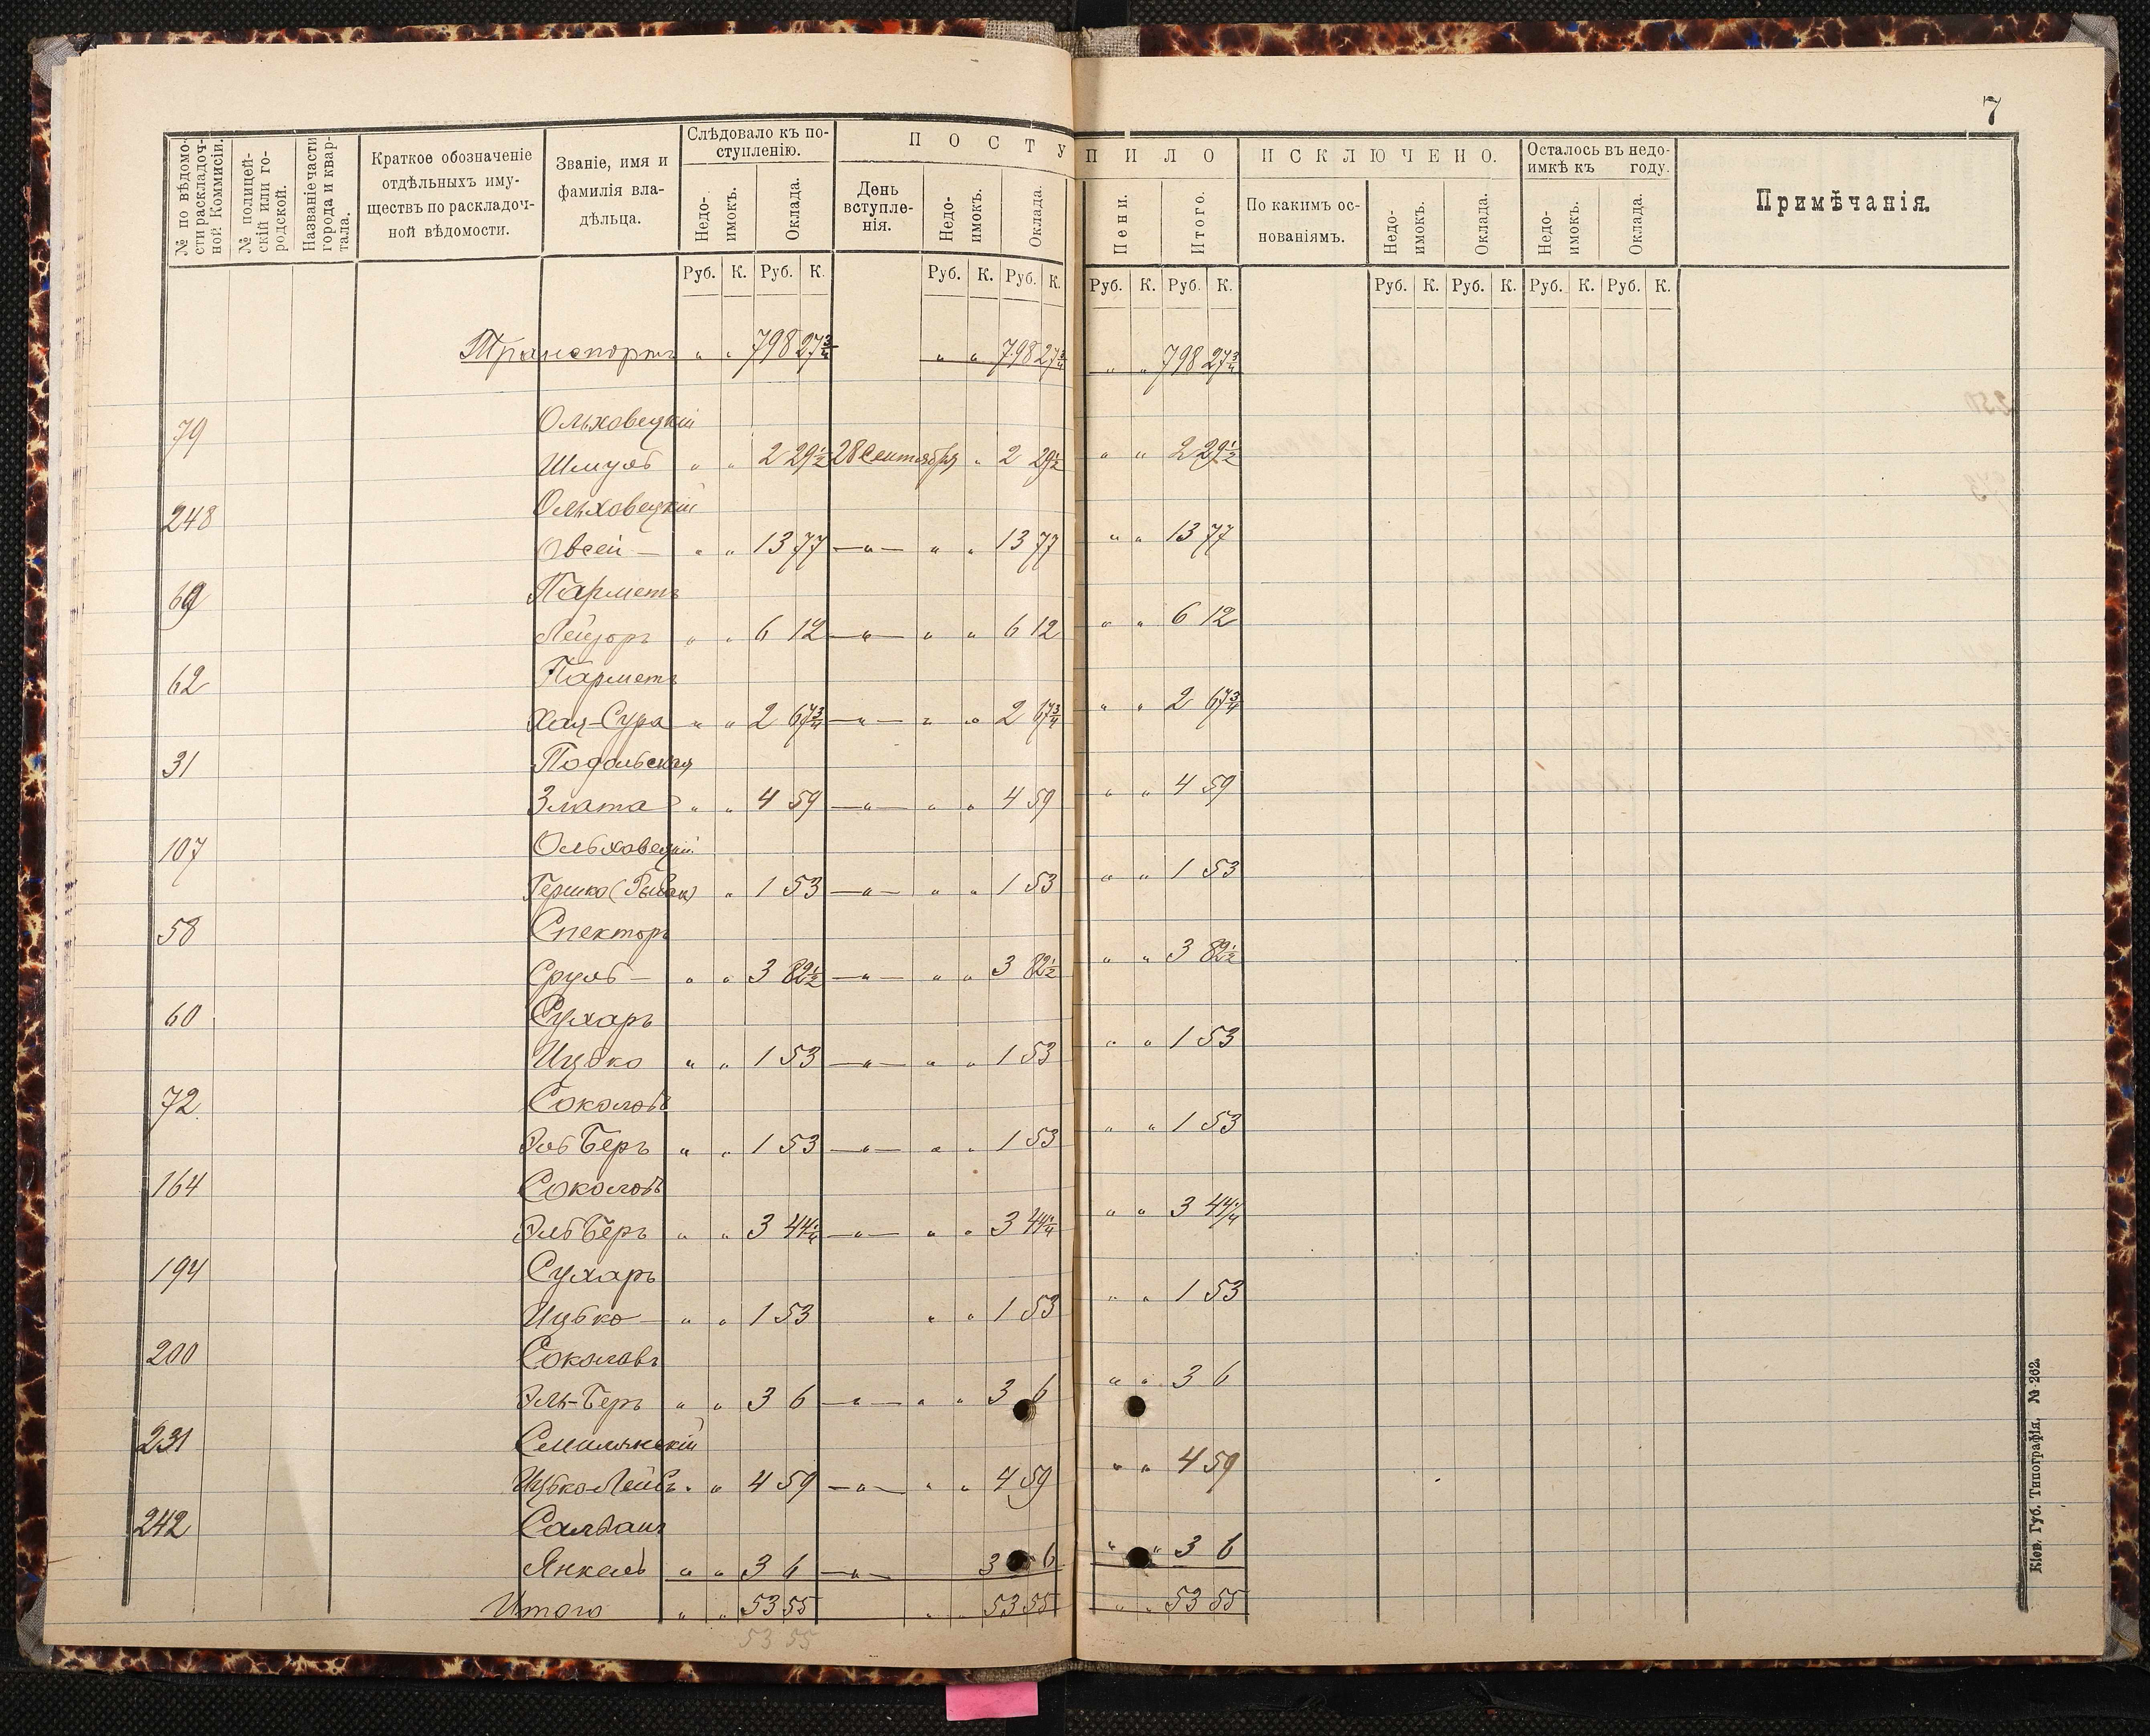 7
№ по вѣдомости раскладочной Коммисіи.
№ полицейскій или городской.
Названіе части города и квартала.
Краткое обозначеніе
отдѣльныхъ иму-
ществъ по раскладоч-
ной вѣдомости.
Званіе, имя и
фамилія вла-
дѣльца.
Слѣдовало къ по-
ступленію.
Недо-
имокъ.
Оклада.
ПОСТУПИЛО
День
вступле-
нія.
Недо-
имокъ.
Оклада.
Пени.
Итого.
ИСКЛЮЧЕНО.
По какимъ ос-
нованіямъ.
Недо-
имокъ.
Оклада.
Осталось въ недо-
имкѣ къ году.
Недо-
имокъ.
Оклада.
Примѣчанія.
Руб. К. Руб. К. Руб. К. Руб. К. Руб. К. Руб. К. Руб. К. Руб. К. Руб. К. Руб. К.
Транспортъ " " 798 27¾ " " 798 27¾ " " 798 27¾
79 Ольховецкій
Шмуль " " 2 29½ 28 Сентября " 2 29½ " " 2 29½
248 Ольховецкій
Овсей — " " 13 77 —"— " " 13 77 " " 13 77
69 Парметъ
Лейзоръ " " 6 12 —"— " " 6 12 " " 6 12
62 Парметъ
Хая-Сура " " 2 67¾ —"— " " 2 67¾ " " 2 67¾
31 Подольская
Злата " " 4 59 —"— " " 4 59 " " 4 59
107 Ольховецкій
Гершко (Рыбак) " 1 53 —"— " " 1 53 " " 1 53
58 Спекторъ
Сруль — " " 3 82½ —"— " " 3 82½ " " 3 82½
60 Сухаръ
Ицько " " 1 53 —"— " " 1 53 " " 1 53
72 Соколовъ
Эль Беръ " " 1 53 —"— " " 1 53 " " 1 53
164 Соколовъ
Эль Беръ " " 3 44¼ —"— " " 3 44¼ " " 3 44¼
194 Сухаръ
Ицько — " " 1 53 " " 1 53 " " 1 53
200 Соколовъ
Эль-Беръ " " 3 6 —"— " " 3 6 " " 3 6
231 Смилянскій
Ицько-Лейбъ " " 4 59 —"— " " 4 59 " " 4 59
242
Янкель " " 3 6 —"— 3 6 " " 3 6
Итого " " 53 55 " " 53 55 " " 53 55
53 55
Кіев. Губ. Типографія. № 262.